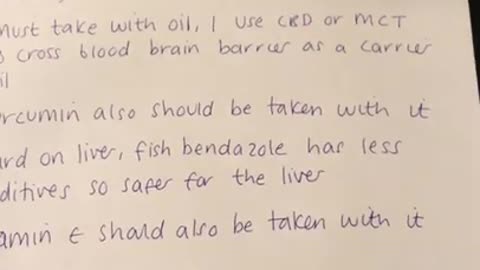 Must take with oil, I use CBD or MCT
o cross blood brain barrier as a carrier
il
rcumin also should be taken with it
ard on liver, fish bendazole has less
ditives so safer for the liver
amin E should also be taken with it